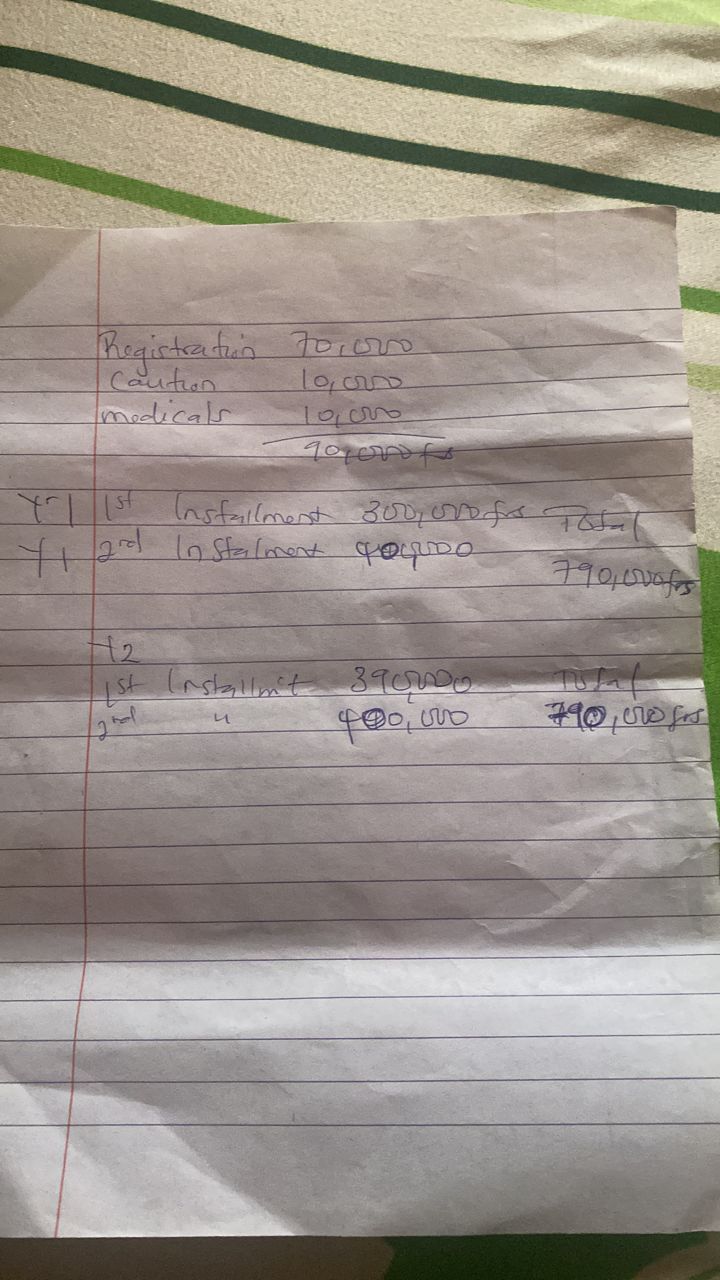 Registration 70,000
Caution 10,000
medicals 10,000
90,000 frs
Yr 1 1st Installment 300,000 frs Total
Y1 2nd Instalment 400,000
790,000frs
Y2
1st Installmit 390,000 Total
2nd " 400,000 790,000 frs